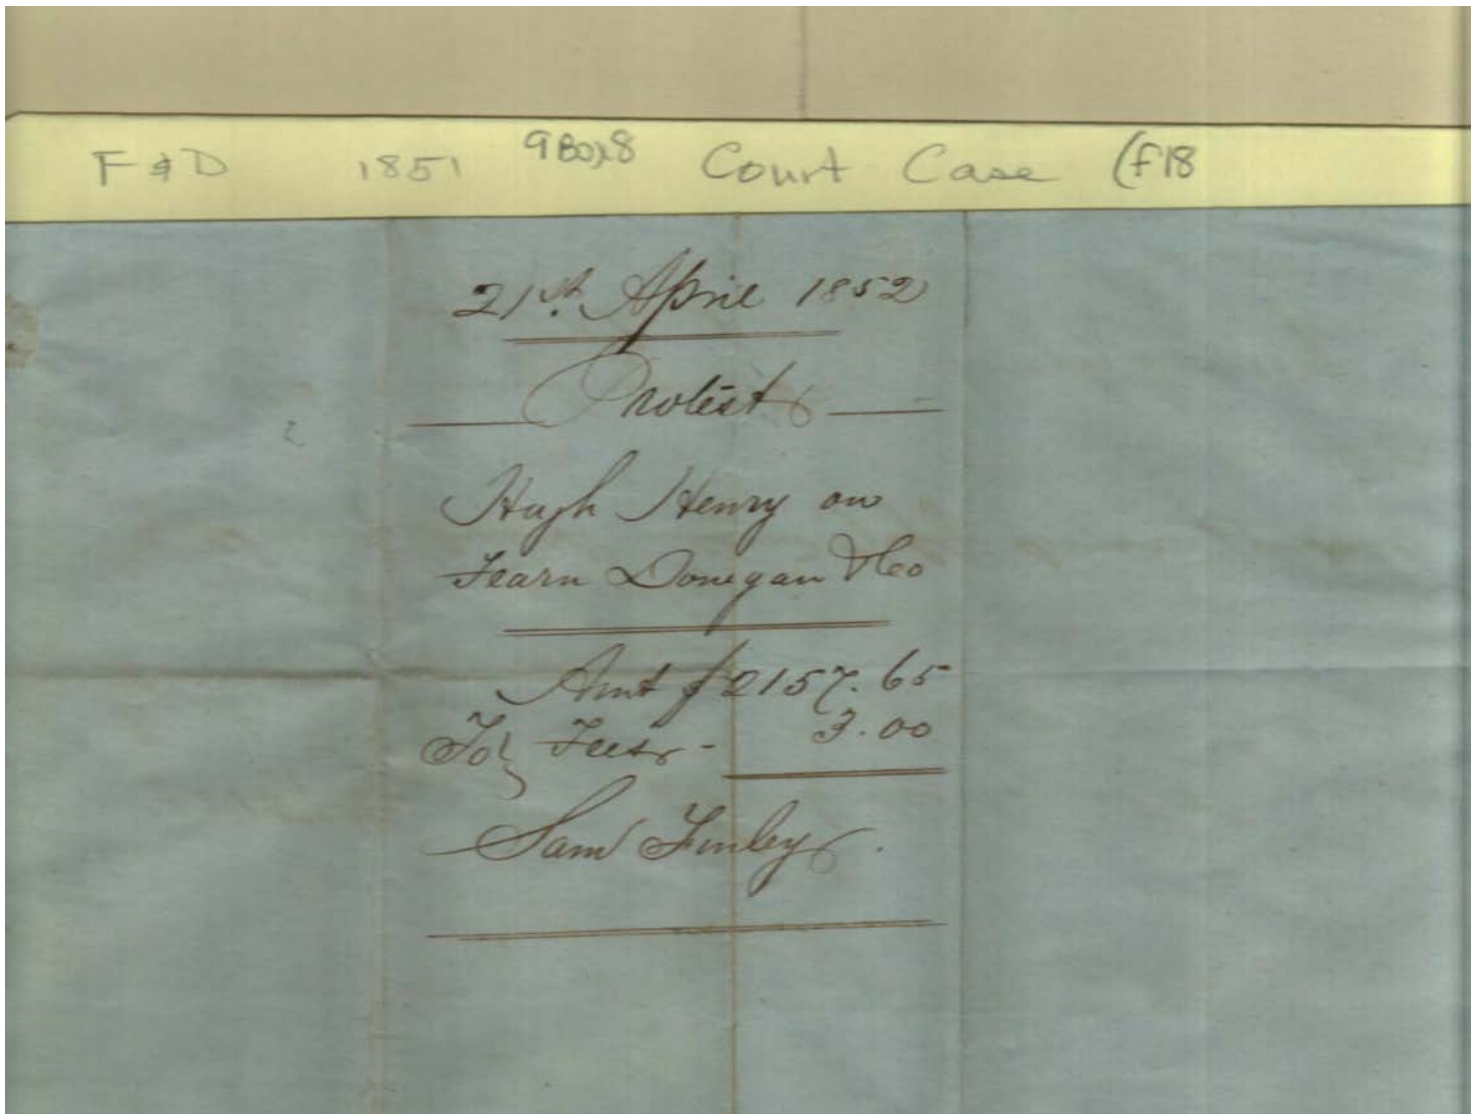 F & D 1851 9 Box 8 Court Case (f18
21st. April 1852
Protest
Hugh Henry on
Fearn Donegan & Co
Amt $2157.65
Fees - 3.00
Sam Finley.